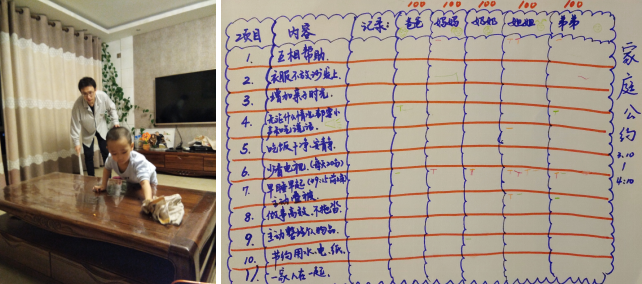 100 100 100 100 100
项目 内容 记录: 爸爸 妈妈 奶奶 姐姐 弟弟
1. 互相帮助.
2. 衣服不放沙发上.
3. 增加亲子时光.
4. 无论什么情况都要小
声和气说话.
5. 吃饭干净.安静.
6. 少看电视.(每天20分)
7. 早睡早起
主动叠被
8. 做事高效.不拖沓.
9. 主动整理个人物品.
10. 节约用水.电.纸.
11. 一家人在一起.
家庭公约
3.10
|
4.10